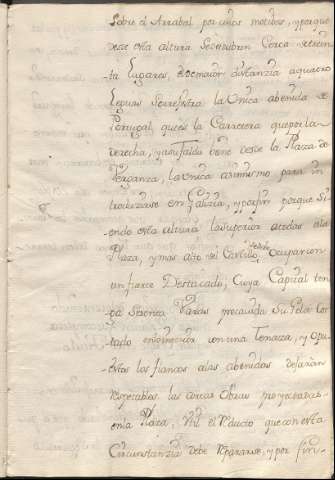 sobre el Arrabal por unos motivos, y porque
desde esta altura se descubren Cerca de trein
ta lugares, a la menor distanzia a quatro
leguas se registra la Unica abenida de
Portugal, que es la Carretera que por la
derecha, y su falda viene desde la Plaza de
Verganza, la unica asimismo para in
troducirse en Galizia, y por fin porque si
endo esta altura la superior a todas a la
Plaza, y mas alta del Castillo, debe ocupar con
un fuerte Destacado, Cuya Capital ten
ga varias su Gola Cor
tado con una Tenaza, y opu
estos los flancos a las abenidas dejarian
respetables las cortas Obras proyectadas
en la Plaza, el Reducto que con esta
Circunstanzia debe repararse, y por